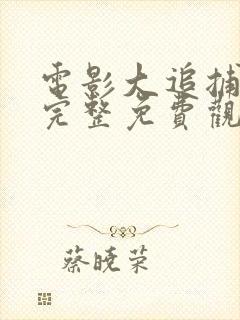 電影大追捕
完整免費觀
蔡曉荣